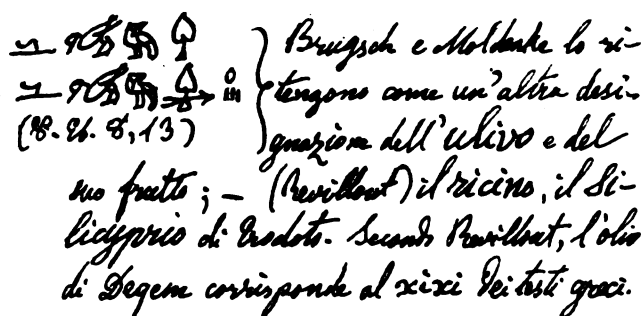 Brugsch e Moldenke lo ri-
tengono come un'altra desi-
(P. Eb. 8, 13) gnazione dell'ulivo e del
suo frutto; — (Revillout) il ricino, il Si-
licyprio di Erodoto. Secondo Revillout, l'olio
di Degem corrisponde al xixi dei testi greci.